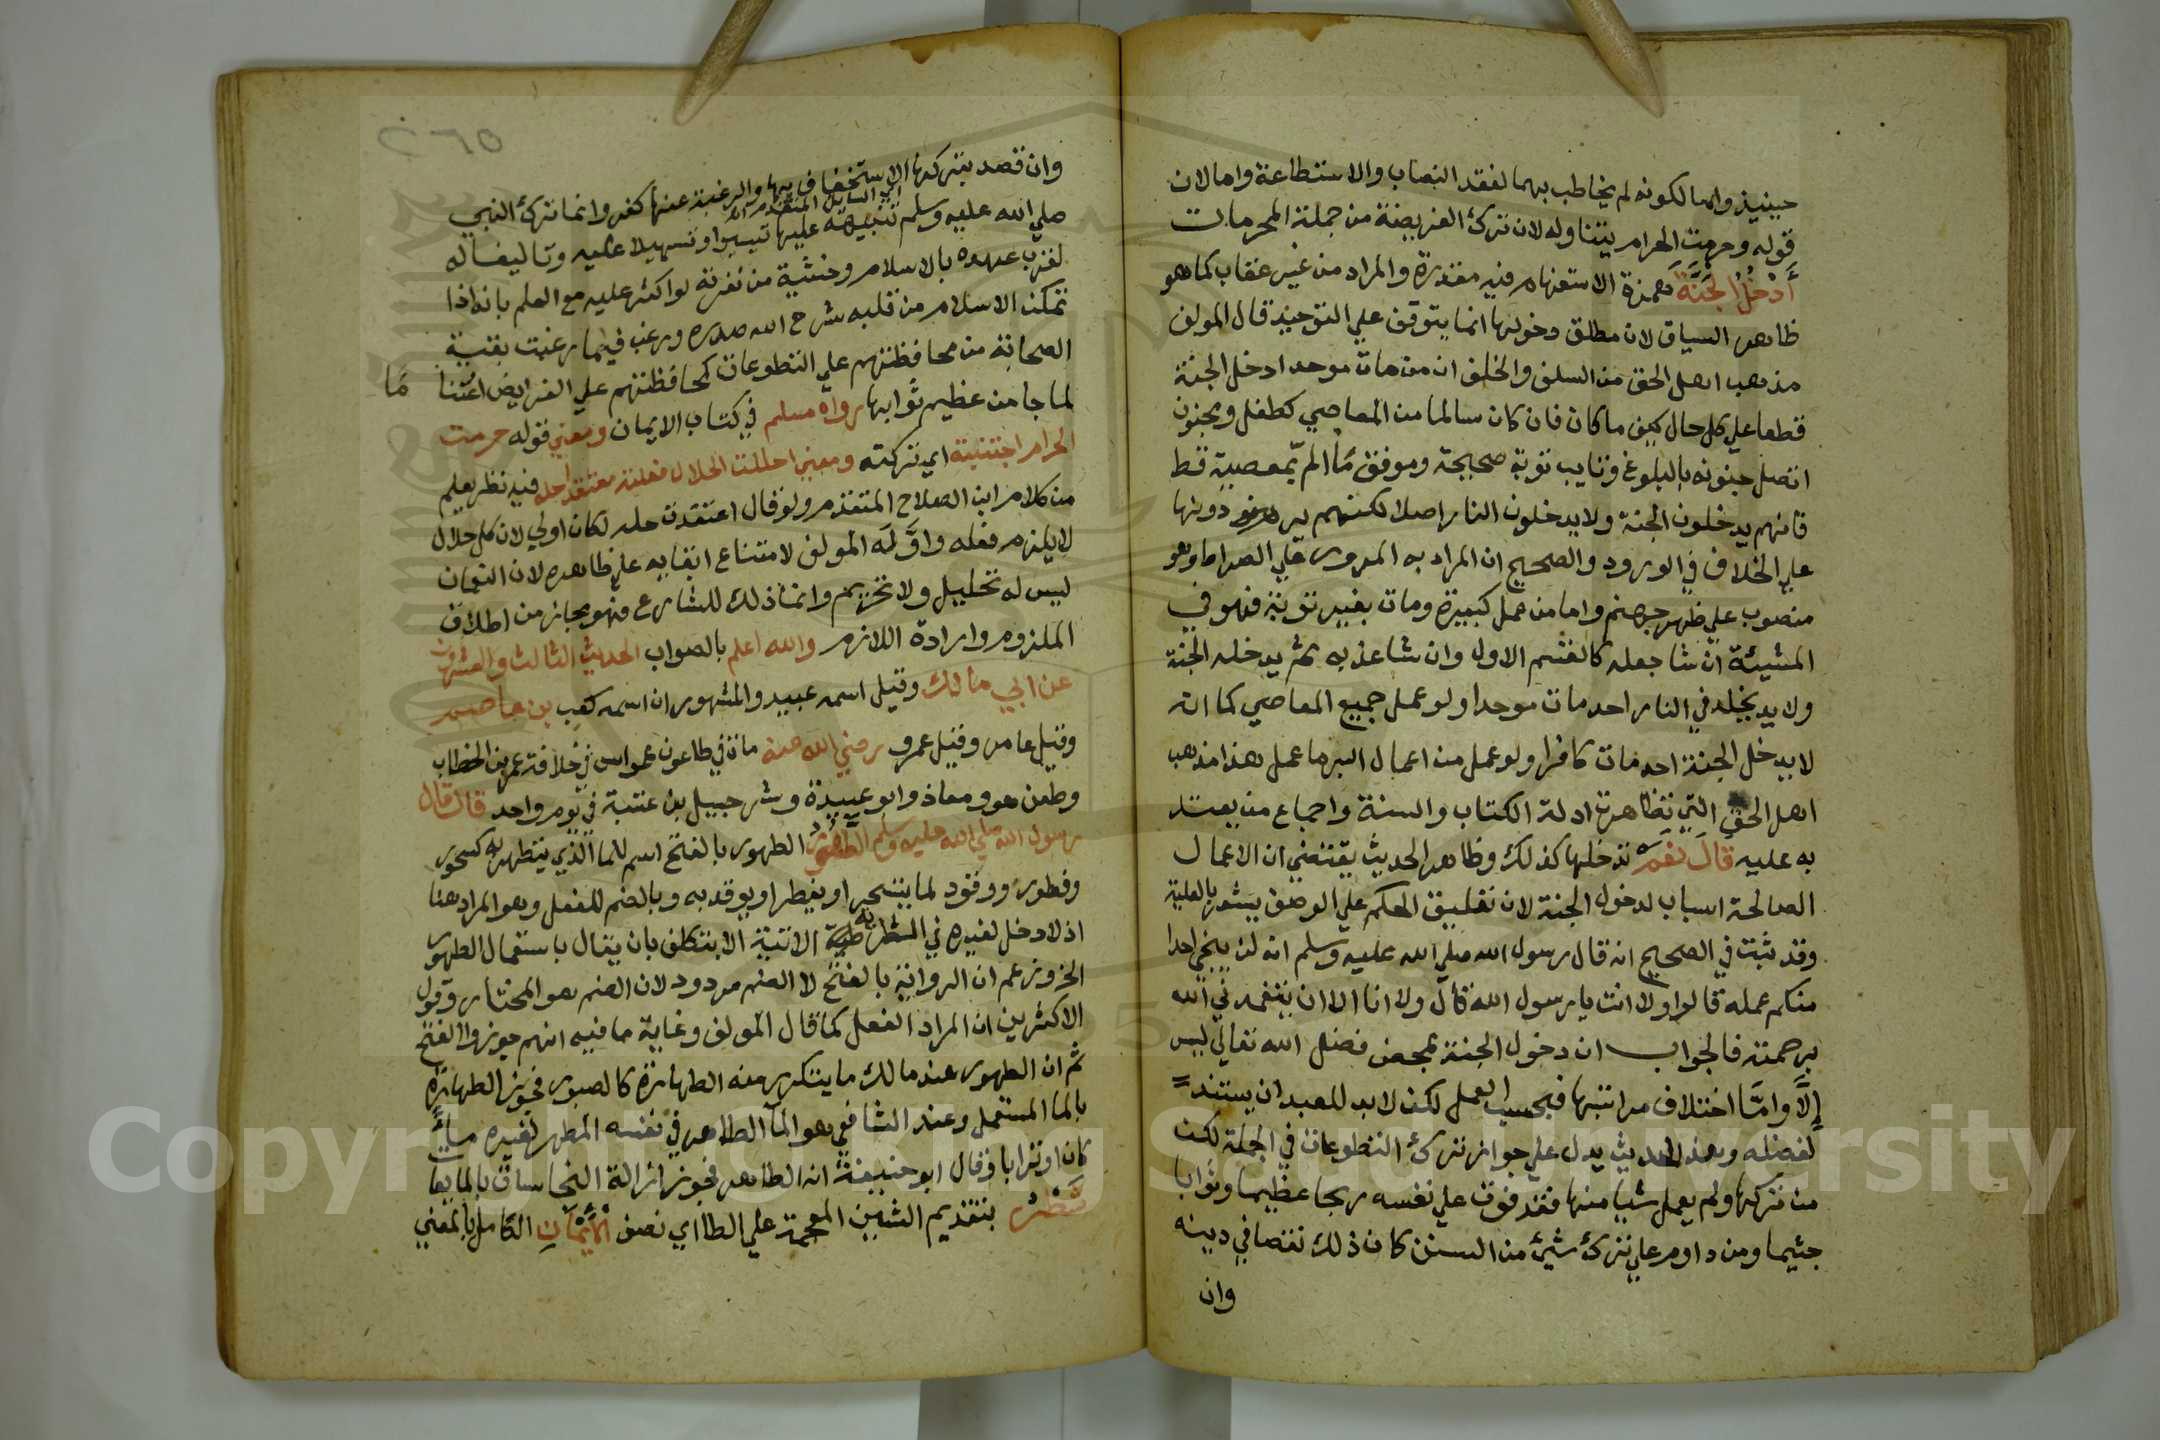 حينيذ واما لكونه لم يخاطب بهما لفقد النصاب والاستطاعة واما لان
قوله وحرمت الحرام يتناوله لان ترك الفريضة من جملة المحرمات
أَدْخُلُ الجَنَّةَ همزة الاستفهام فيه مقدرة والمراد من غير عقاب كما هو
ظاهر السياق لان مطلق دخولها انما يتوقف علي التوحيد قال المولف
مذهب اهل الحق من السلف والخلف ان من مات موحدا دخل الجنة
قطعا علي كل حال كيف ما كان فان كان سالما من المعاصي كطفل ومجنون
اتصل جنونه بالبلوغ وتايب توبة صحيحة وموفق ما الم بمعصية قط
فانهم يدخلون الجنة ولا يدخلون النار اصلا لكنهم يردونها
علي الخلاف في الورود والصحيح ان المراد به المرور علي الصراط وهو
منصوب علي ظهر جهنم واما من عمل كبيرة ومات بغير توبة فهو في
المشيئة ان شا جعله كالقسم الاول وان شا عذبه ثم يدخله الجنة
ولا يدخلد في النار احد مات موحدا ولو عمل جميع المعاصي كما انه
لا يدخل الجنة احد مات كافرا ولو عمل من اعمال البر ما عمل هذا مذهب
اهل الحق التي تظاهرت ادلة الكتاب والسنة واجماع من يعتد
به عليه قَالَ نَعَمْ تدخلها كذلك وظاهر الحديث يقتضي ان الاعمال
الصالحة اسباب لدخول الجنة لان تعليق الحكم علي الوصف يشعر بالعلية
وقد ثبت في الصحيح انه قال رسول الله صلي الله عليه وسلم انه لن ينجي احدا
منكم عمله قالوا ولا انت يا رسول الله قال ولا انا الا ان يتغمدني الله
برحمته فالجواب ان دخول الجنة بمحض فضل الله تعالي ليس
إِلَّا وامَّا اختلاف مراتبها فبحسب العمل لكن لا بد للعبد ان يستند
لفضله وهذا الحديث يدل علي جواز ترك التطوعات في الجملة لكن
من تركها ولم يعمل شيا منها فقد فوت علي نفسه ربحا عظيما وثوابا
جثيما ومن داوم علي ترك شيئ من السنن كان ذلك نقصا في دينه
وان
وان قصد بتركها الاستخفاف بها والرغبة عنها كفر وانما ترك النبي
صلي الله عليه وسلم تنبيهه عليها تيسيرا وتسهيلا عليه وتاليفا له
لقرب عهده بالاسلام وخشية من نفرته لو اكثر عليه مع العلم بانه اذا
تمكن الاسلام من قلبه شرح الله صدره ورغب فيما رغبت بقية
الصحابة من محافظتهم علي التطوعات كمحافظتهم علي الفرايض اغتناما
لما جا من عظيم ثوابها رواه مسلم في كتاب الايمان ومعني قوله حرمت
الحرام اجتنبته اي تركته ومعني احللت الحلال فعلته معتقدا حله فيه نظر يعلم
من كلام ابن الصلاح المتقدم ولو قال اعتقدت حله لكان اولي لان كل حلال
لا يلزم فعله واوَّلَه المولف لامتناع ابقايه علي ظاهره لان النعمان
ليس له تحليل ولا تحريم وانما ذلك للشارع فهو مجاز من اطلاق
الملزوم وارادة اللازم والله اعلم بالصواب الحديث الثالث والعشرون
عن ابي مالك وقيل اسمه عبيد والمشهور ان اسمه كعب بن عاصم
وقيل عامر وقيل عمرو رضي الله عنه مات في طاعون عمواس في خلافة عمر بن الخطاب
وطعن هو ومعاذ وابو عبيدة وشرحبيل بن عتبة في يوم واحد قال قال
رسول الله صلي الله عليه وسلم الطُّهُورُ الطهور بالفتح اسم للما الذي يتطهر به كسحور
وفطور ووقود لما يتسحر او يفطر او يوقد به وبالضم للفعل وهو المراد هنا
اذ لا دخل لغيره في الشطرية الاتية الا بتكلف بان يقال باستعمال الطهور
الخ وزعم ان الرواية بالفتح لا الضم مردود لان الضم هو المختار وقول
الاكثرين ان المراد الفعل كما قال المولف وغاية ما فيه انهم جوزوا الفتح
ثم ان الطهور عند مالك ما يتكرر منه الطهارة كالصبور فجوز الطهارة
بالما المستعمل وعند الشافعي هو المآ الطاهر في نفسه المطهر لغيره مآءً
كان او ترابا وقال ابو حنيفة انه الطاهر فجوز ازالة النجاسات بالمايعا
شَطْرُ بتقديم الشين المعجمة علي الطا اي نصف الْإِيمَانِ الكامل بالمعني